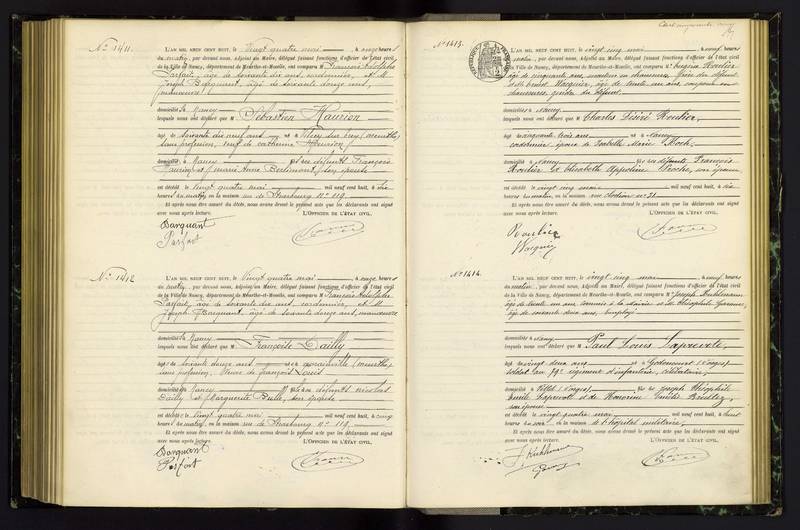 N° 1411.
L'AN MIL NEUF CENT HUIT, le Vingt quatre mai, à onze heures
du matin, par devant nous, Adjoint au Maire, délégué faisant fonctions d'officier de l'état civil
de la Ville de Nancy, département de Meurthe-et-Moselle, ont comparu M François Adolphe
Parfait, âgé de soixante dix ans, cordonnier, et M
Joseph Barquant, âgé de soixante douze ans,
manœuvre
domiciliés à Nancy
lesquels nous ont déclaré que M Sébastien Haurion
âgé de soixante dix neuf ans né à
sans profession, veuf de Catherine
domicilié à Nancy fils des défunts François
Haurion et Marie Anne son épouse
est décédé le vingt quatre mai mil neuf cent huit, à six
heures du matin, en la maison rue de Strasbourg n° 119.
Et après nous être assuré du décès, nous avons dressé le présent acte que les déclarants ont signé
avec nous après lecture. L'OFFICIER DE L'ÉTAT CIVIL,
Barquant
Parfait
N° 1412
L'AN MIL NEUF CENT HUIT, le Vingt quatre mai, à onze heures
du matin, par devant nous, Adjoint au Maire, délégué faisant fonctions d'officier de l'état civil
de la Ville de Nancy, département de Meurthe-et-Moselle, ont comparu M François Adolphe
Parfait, âgé de soixante dix ans, cordonnier, et M
Joseph Barquant, âgé de soixante douze ans, manœuvre
domiciliés à Nancy
lesquels nous ont déclaré que M Françoise Dailly
âgée de soixante douze ans née à (Meurthe)
sans profession, veuve de François Louis
domiciliée à Nancy fille des défunts Nicolas
Dailly et Marguerite Bulle, son épouse
est décédée le vingt quatre mai mil neuf cent huit, à cinq
heures du matin, en la maison rue de Strasbourg n° 119.
Et après nous être assuré du décès, nous avons dressé le présent acte que les déclarants ont signé
avec nous après lecture. L'OFFICIER DE L'ÉTAT CIVIL,
Barquant
Parfait
N° 1413.
L'AN MIL NEUF CENT HUIT, le vingt cinq mai, à neuf heures
du matin, par devant nous, Adjoint au Maire, délégué faisant fonctions d'officier de l'état civil
de la Ville de Nancy, département de Meurthe-et-Moselle, ont comparu M Eugène Roulier
âgé de cinquante ans, en chaussures, frère du défunt
et Ernest Wasquier, âgé de trente un ans, coupeur en
chaussures, gendre du défunt,
domiciliés à Nancy
lesquels nous ont déclaré que M Charles Désiré Roulier,
âgé de cinquante trois ans né à Nancy
cordonnier, époux de Isabelle Marie Koch,
domicilié à Nancy fils des défunts François
Roulier et Elisabeth Appoline son épouse
est décédé le vingt cinq mai mil neuf cent huit, à six
heures du matin, en la maison
Et après nous être assuré du décès, nous avons dressé le présent acte que les déclarants ont signé
avec nous après lecture. L'OFFICIER DE L'ÉTAT CIVIL,
Roulier
N° 1414.
L'AN MIL NEUF CENT HUIT, le vingt cinq mai, à neuf heures
du matin, par devant nous, Adjoint au Maire, délégué faisant fonctions d'officier de l'état civil
de la Ville de Nancy, département de Meurthe-et-Moselle, ont comparu M Joseph Kuhlmann
âgé de trente un ans, à la Mairie et Théophile
âgé de soixante deux ans, employé
domiciliés à Nancy
lesquels nous ont déclaré que M Paul Louis Laprevote,
âgé de vingt deux ans né à (Vosges)
soldat au 79e régiment d'infanterie, célibataire,
domicilié à (Vosges) fils de Joseph Théophile
Emile Laprevote et de Honorine
son épouse
est décédé le vingt quatre mai mil neuf cent huit, à huit
heures du soir, en la maison à l'hôpital militaire,
Et après nous être assuré du décès, nous avons dressé le présent acte que les déclarants ont signé
avec nous après lecture. L'OFFICIER DE L'ÉTAT CIVIL,
J. Kuhlmann